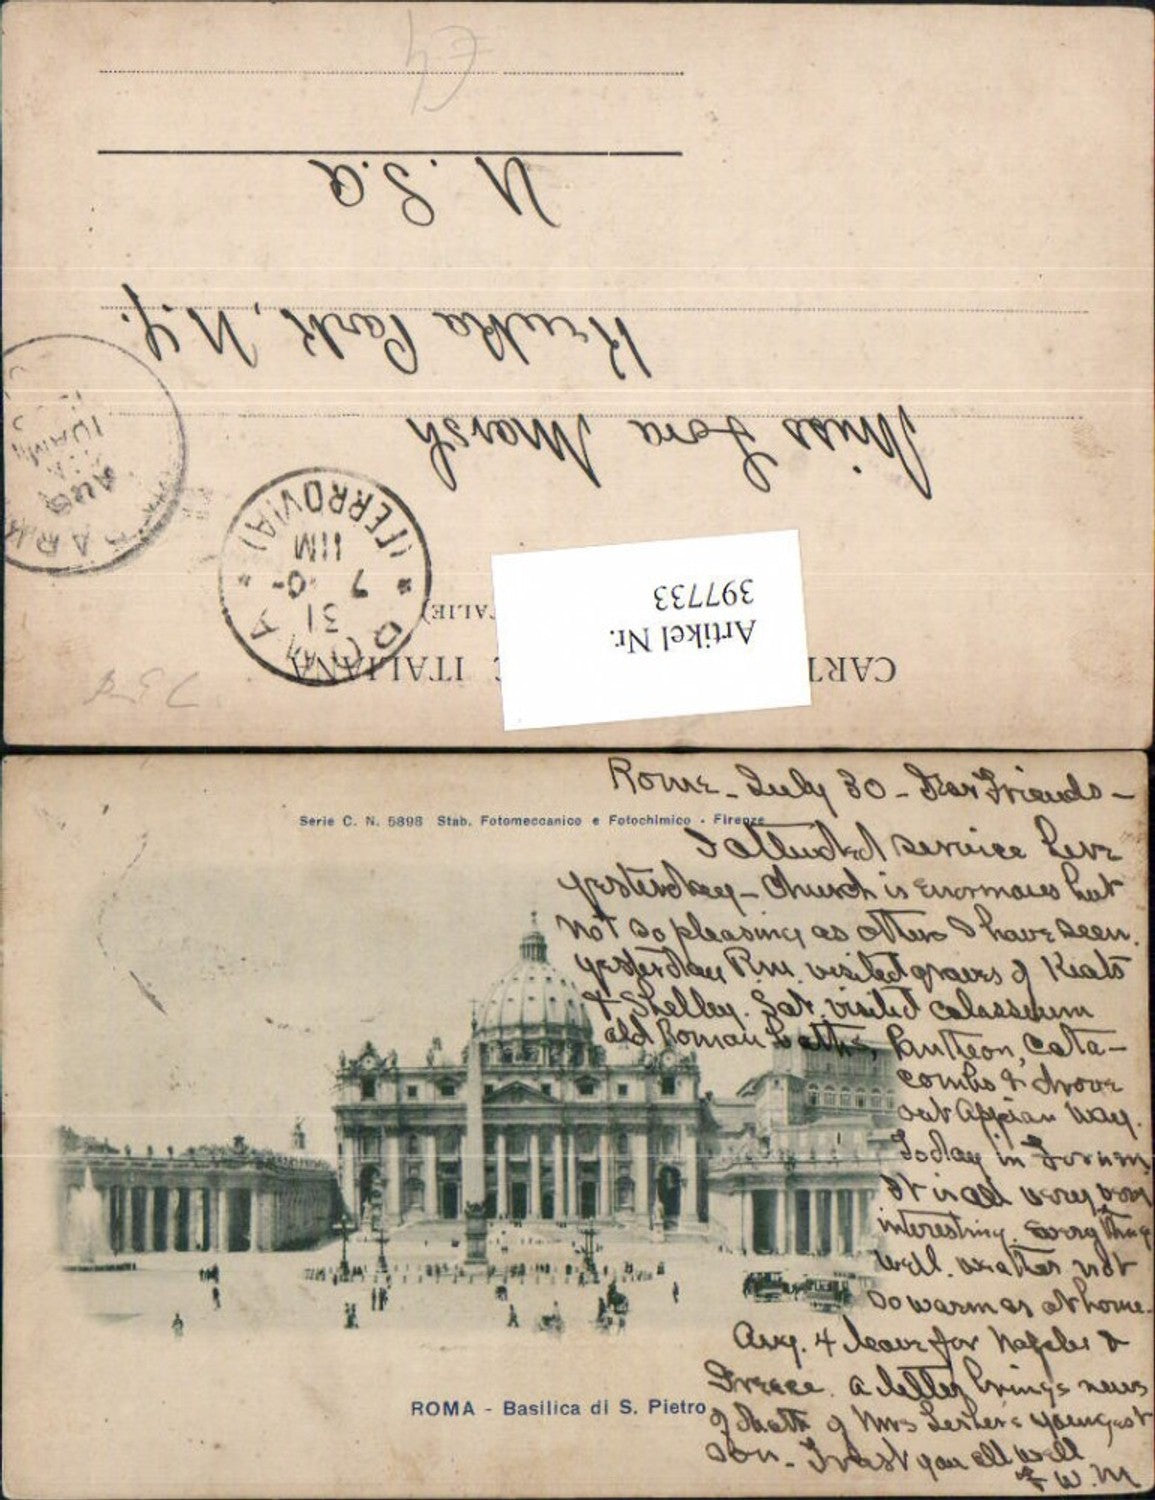 CART ITALIANA
TALIE)
Artikel Nr.
397733
ROMA
(FERROVIA)
31
7 0
11M
PARK
AUG
10AM
Miss Lora Marsh
Keuka Park, N.Y.
U.S.A
Serie C. N. 5898 Stab. Fotomeccanico e Fotochimico - Firenze
Rome - July 30 - Dear Friends -
I attended service here
yesterday - Church is enormous but
not so pleasing as others I have seen.
yesterday P.M. visited graves of Keats
& Shelley. Sat. visited colasseum
old Roman baths, Pantheon, cata-
combs & drove
out Appian Way.
Today in Forum
It is all very very
interesting. Everything
well. weather not
so warm as at home.
Aug. 4 leave for Naples &
Greece. a letter brings news
of death of Mrs youngest
son - Trust you all well
F. W. M
ROMA - Basilica di S. Pietro